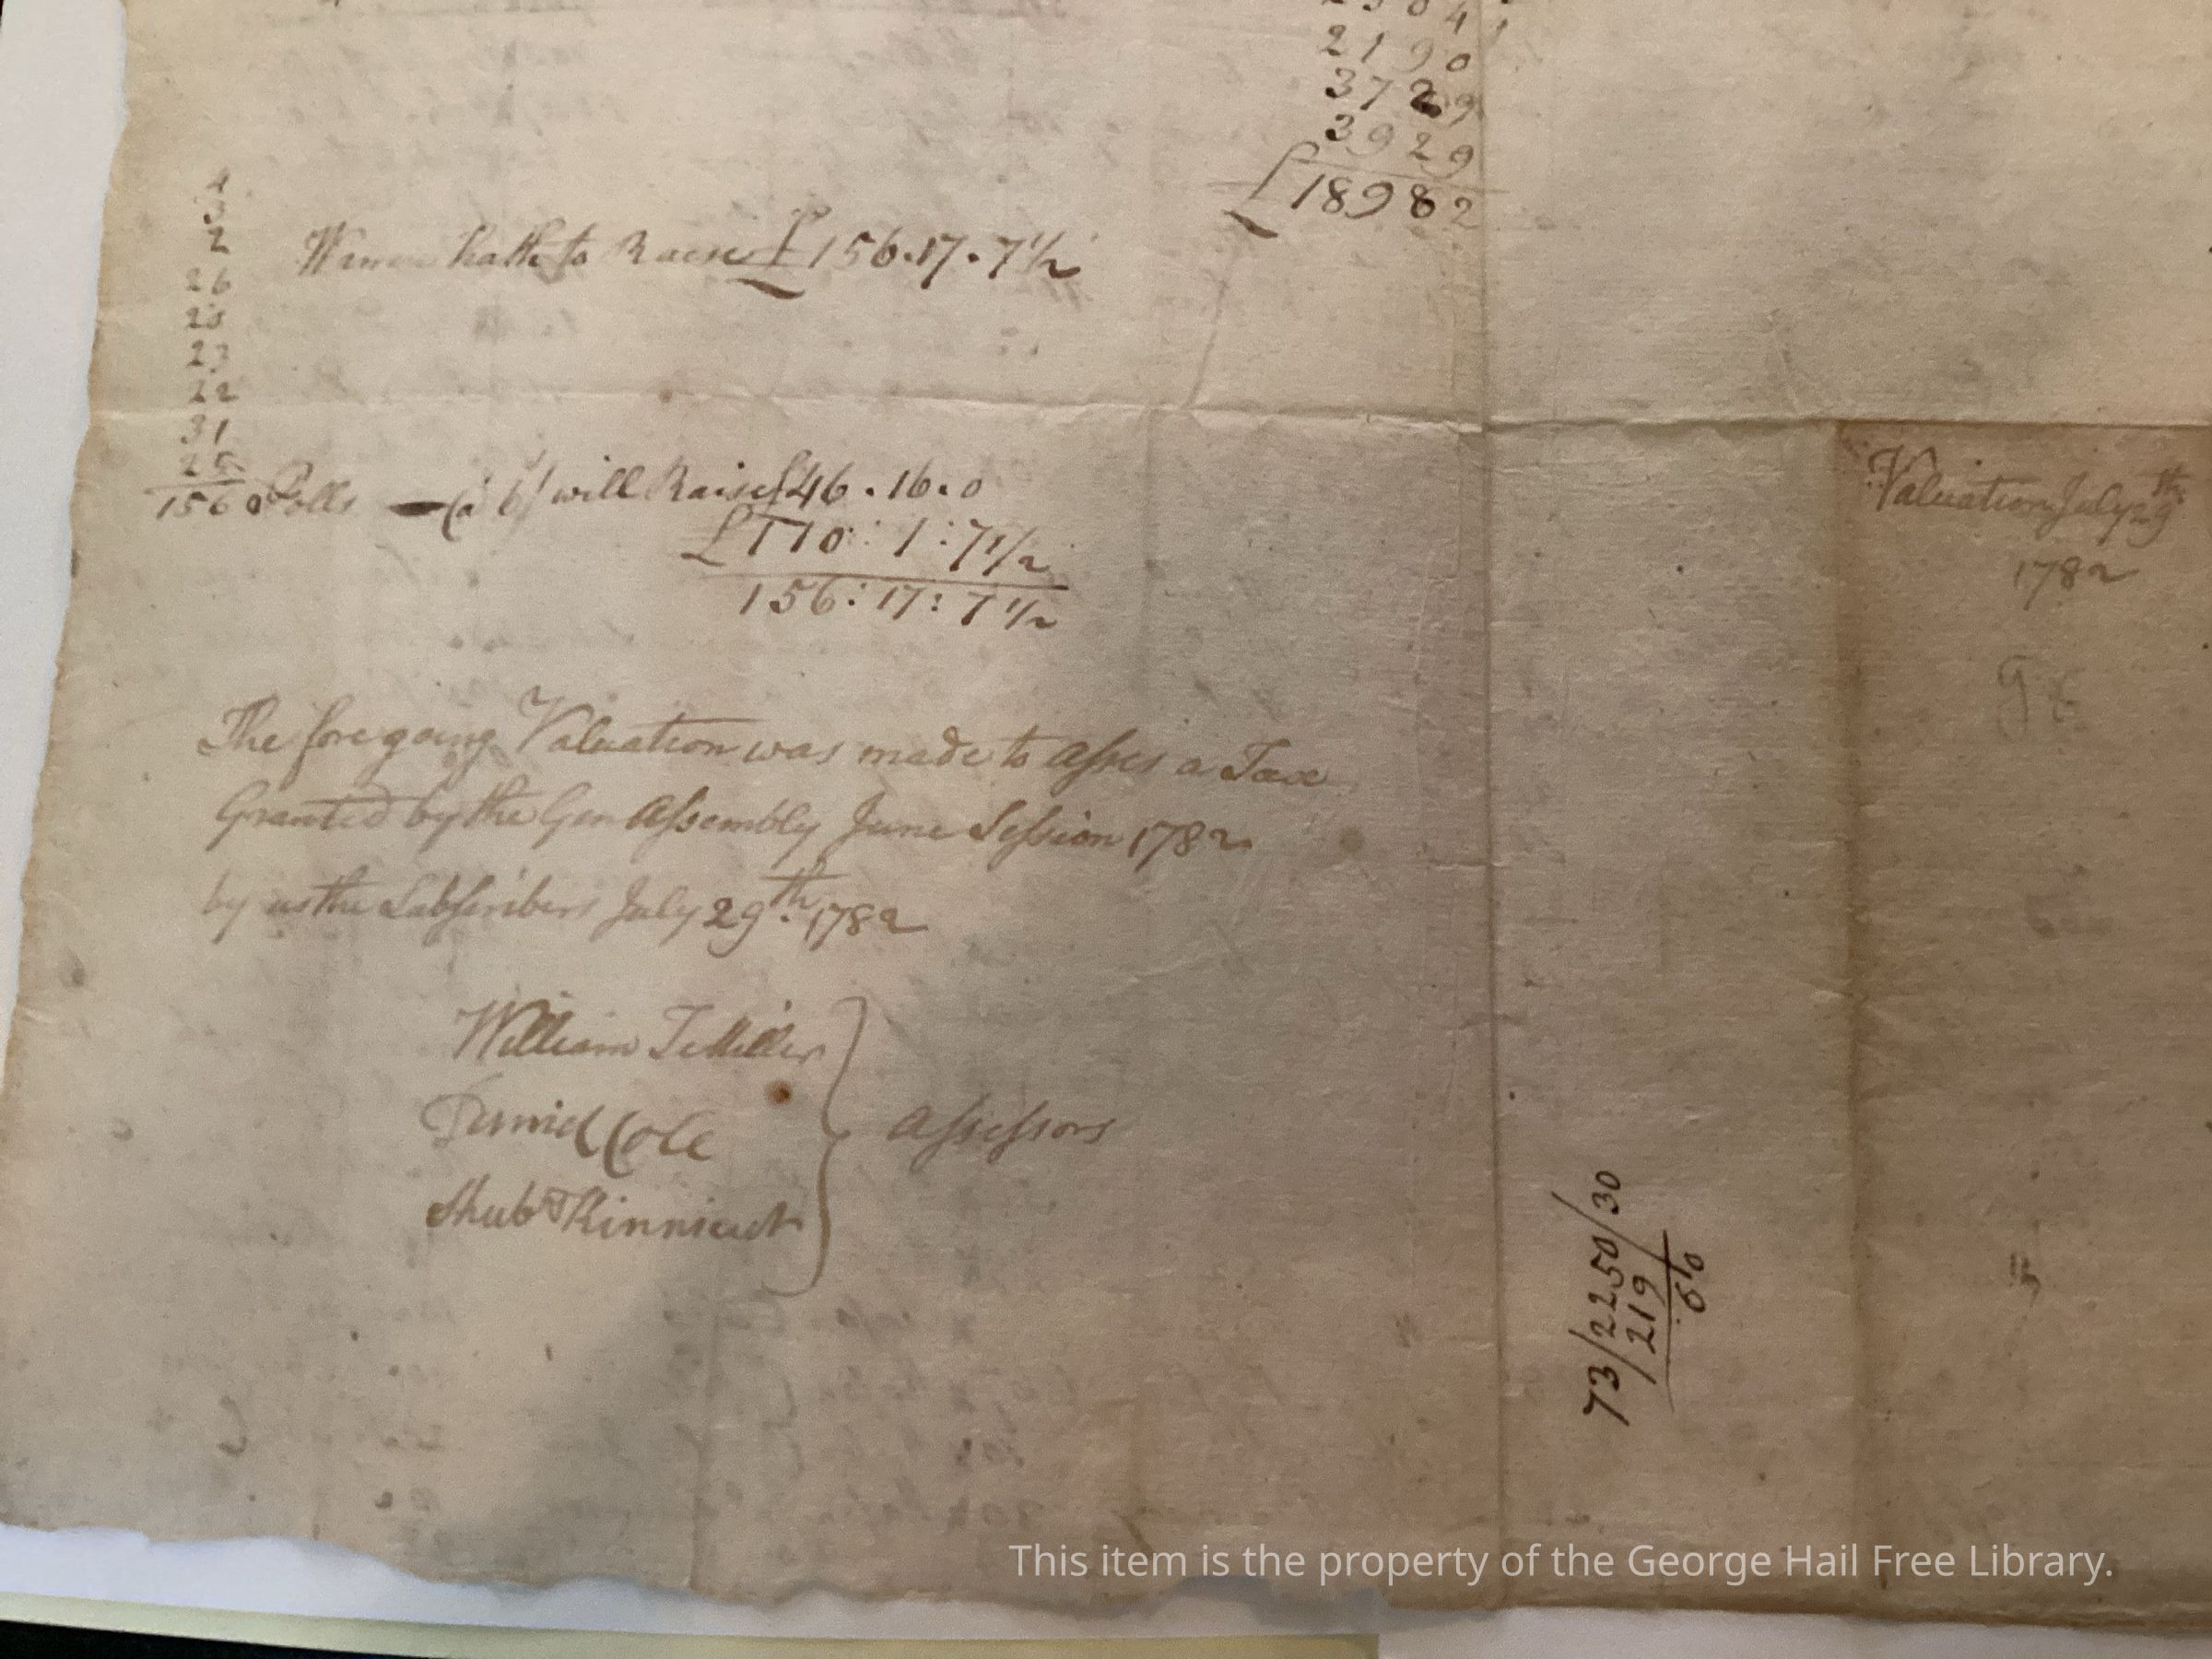 2190
3729
3929
£18982
2
26
23
22
31
Warren hath to Raise £156.17.7½
156 Polls — @ 6/ will Raise £46.16.0
£110:1:7½
156:17:7½
The foregoing Valuation was made to asses a Tax
Granted by the Gen Assembly June Session 1782
by us the Subscribers July 29th. 1782
William T Miller
Daniel Cole
Shubl Kinnicutt
assessors
Valuation July 29th
1782
73/2250/30
219
60
This item is the property of the George Hail Free Library.